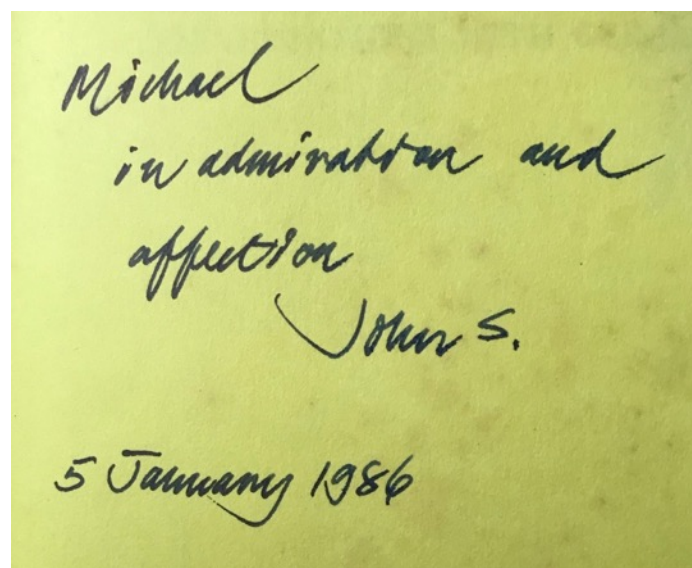 Michael
in admiration and
affection
John S.
5 January 1986